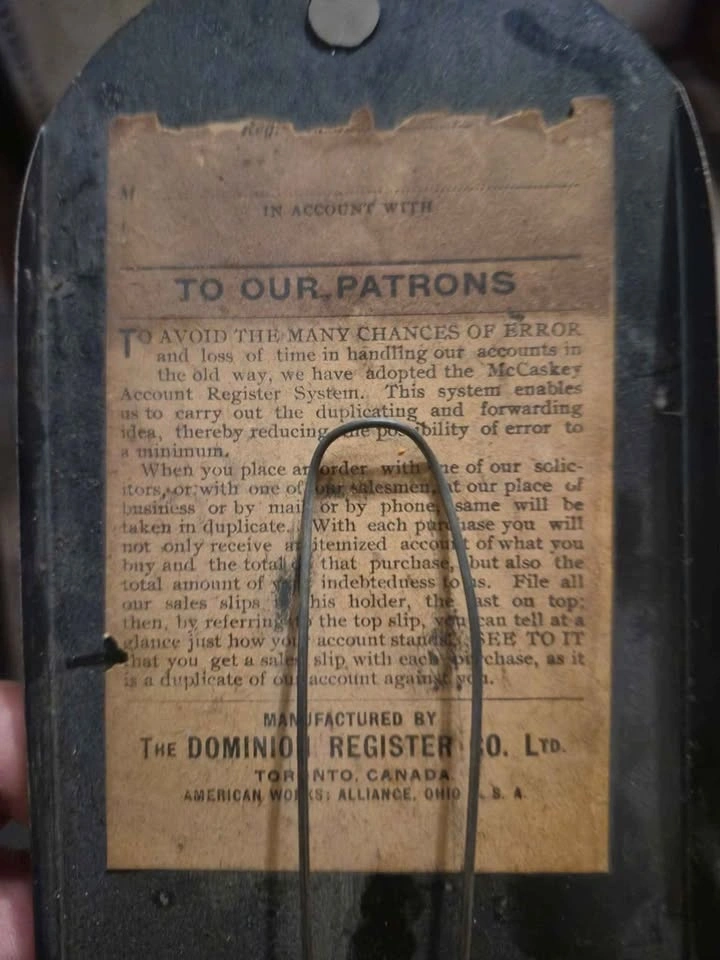 Reg.
M
IN ACCOUNT WITH
TO OUR PATRONS
TO AVOID THE MANY CHANCES OF ERROR
and loss of time in handling our accounts in
the old way, we have adopted the McCaskey
Account Register System. This system enables
us to carry out the duplicating and forwarding
idea, thereby reducing the possibility of error to
a minimum.
When you place an order with one of our solic-
itors, or with one of our salesmen, at our place of
business or by mail or by phone, same will be
taken in duplicate. With each purchase you will
not only receive an itemized account of what you
buy and the total of that purchase, but also the
total amount of your indebtedness to us. File all
our sales slips his holder, the last on top;
then, by referring to the top slip, you can tell at a
glance just how your account stands. SEE TO IT
that you get a sales slip with each purchase, as it
is a duplicate of our account against you.
MANUFACTURED BY
THE DOMINION REGISTER CO. LTD.
TORONTO, CANADA
AMERICAN WORKS: ALLIANCE, OHIO U. S. A.